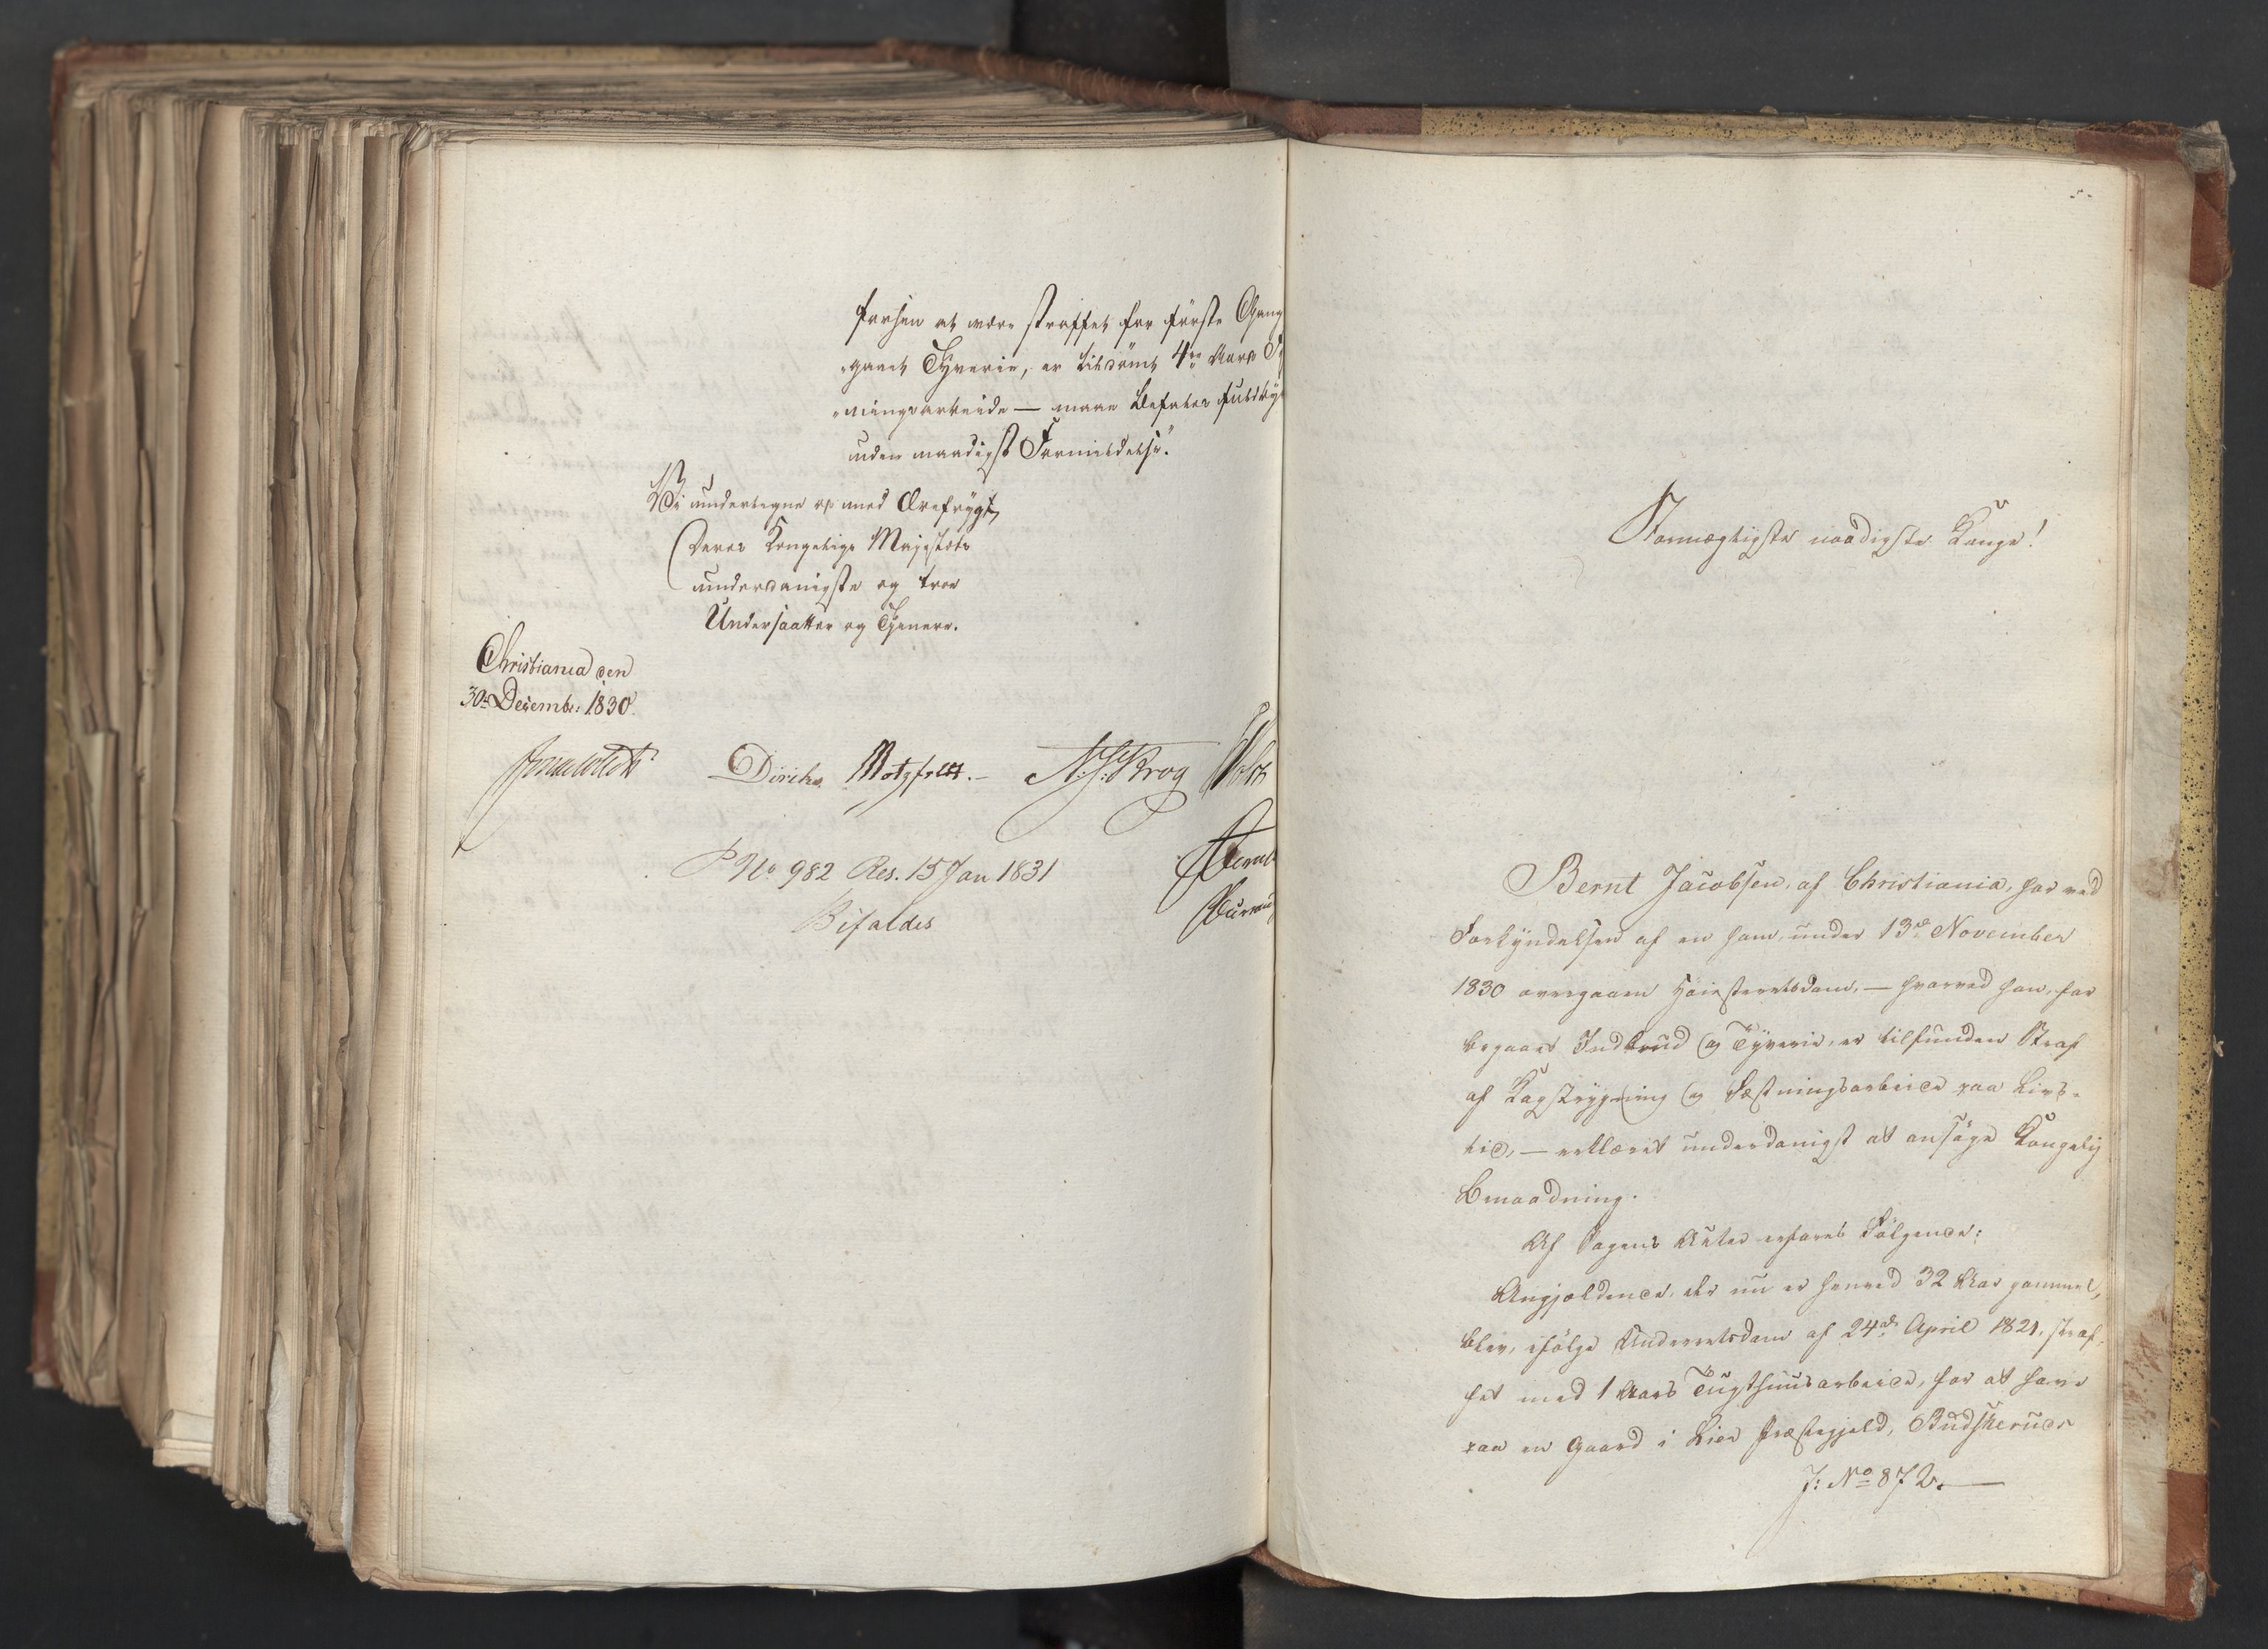 forhen at være straffet for første Gang
gaaet Tyverie, er tildømt 4re Aars
-ningsarbeide — maae befales fuldby
uden naadigst Formildelse."
Vi undertegne os med Ærefrygt,
Deres Kongelige Majestæts
underdanigste og troe
Undersaatter og Tjenere.
Christiania den
30te Decembr: 1830.
Diriks Motzfeldt.- N. J: Krog Holst
P No. 982 Res. 15 Jan 1831
Bifaldes
Stormægtigste naadigste Konge!
Bernt Jacobsen, af Christiania, har ved
Forkyndelsen af en ham, under 13de November
1830 overgaaen Høiesteretsdom, — hvorved han, for
begaaet Indbrud og Tyverie, er tilfunden Straf
af Kagstrygning og Fæstningsarbeide paa Livs-
tid, — erklæret underdanigst at ansøge Kongelig
Benaadning.
Af Sagens Acter erfares Følgende:
Angjældende, der nu er henved 32 Aar gammel,
blev, ifølge Underretsdom af 24de April 1821, straf-
fet med 1 Aars Tugthuusarbeide, for at have
paa en Gaard i Lier Præstegjeld, Budskeruds
J: No 872.—